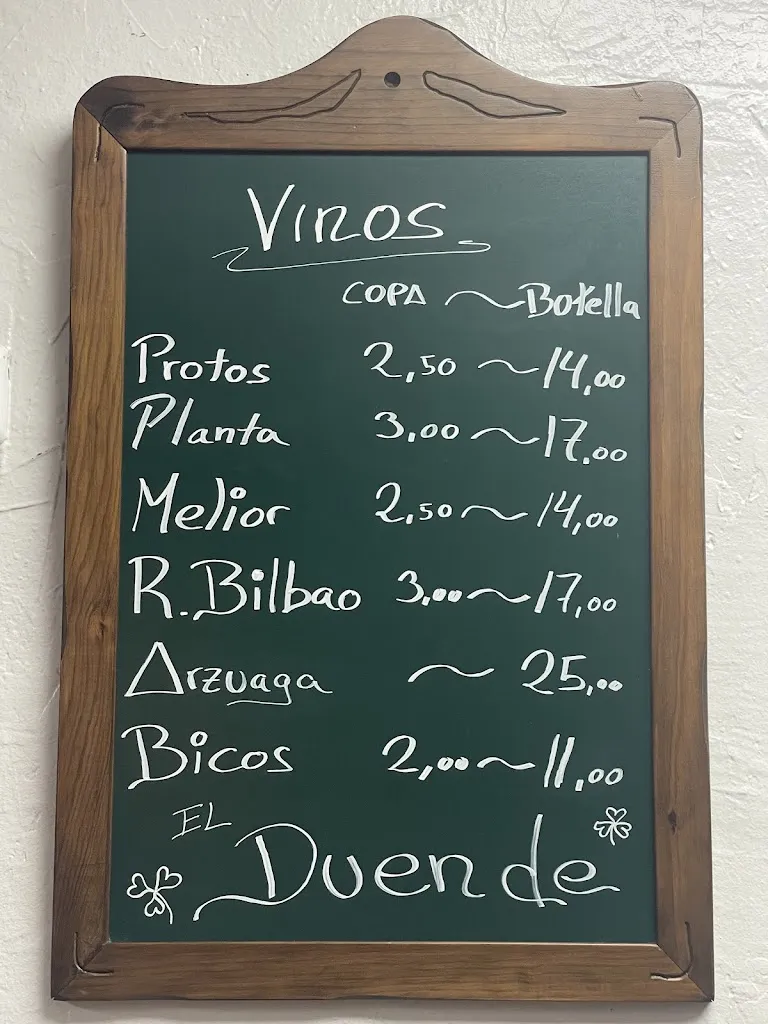 Vinos
COPA ~ Botella
Protos 2,50 ~ 14,00
Planta 3,00 ~ 17,00
Melior 2,50 ~ 14,00
R. Bilbao 3,00 ~ 17,00
Arzuaga ~ 25,00
Bicos 2,00 ~ 11,00
EL
Duende